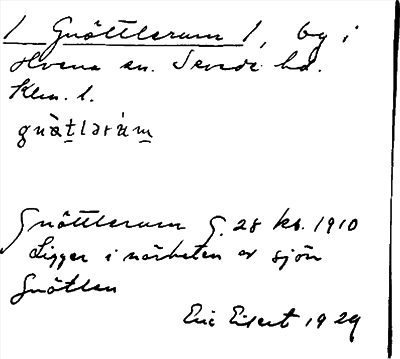 1 Gnöttlerum 1, by i
Hvena sn. Sevede hd.
Klm. l.
gnàtlərúm
Gnöttlerum G. 28 kb. 1910
Ligger i närheten av sjön
Gnötlen
Eric Eisert 1929